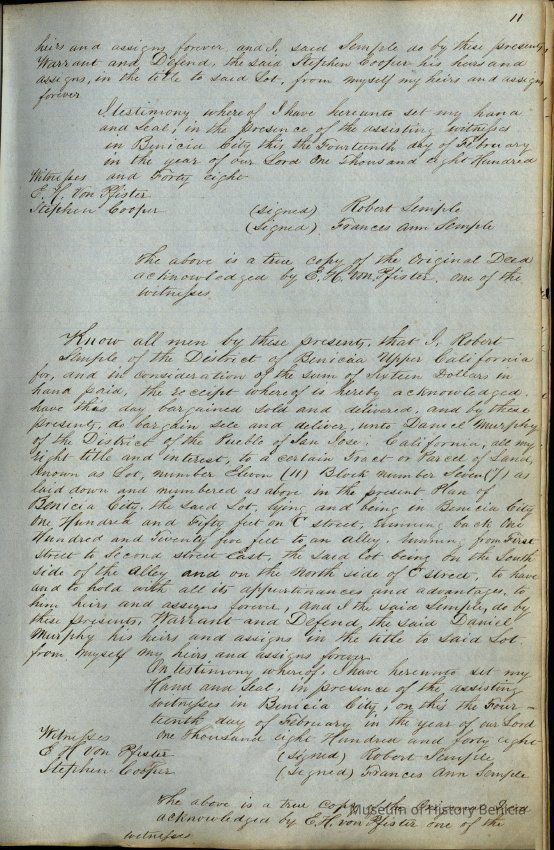 11
heirs and assigns forever, and I, said Semple do by these presents,
Warrant and Defend, the said Stephen Cooper his heirs and
assigns, in the title to said Lot, from myself my heirs and assigns
forever
I testimony whereof I have hereunto set my hand
and seal, in the presence of the assisting witnesses
in Benicia City this the Fourteenth day of February
in the year of our Lord One Thousand eight Hundred
Witnesses and Forty eight
E. H. Von Pfister
Stephen Cooper (signed) Robert Semple
(signed) Frances Ann Semple
The above is a true copy of the Original Deed
acknowledged by E. H. Von Pfister, one of the
witnesses
Know all men by these presents, that I, Robert
Semple of the District of Benicia Upper California
for, and in consideration of the sum of Sixteen Dollars in
hand paid, the receipt whereof is hereby acknowledged.
have this day bargained sold and delivered, and by these
presents, do bargain sell and deliver, unto Daniel Murphy
of the District of the Pueblo of San Jose, California, all my
right title and interest, to a certain Tract or Parcel of Land,
known as Lot, number Eleven (11) Block number Seven (7) as
laid down and numbered as above in the present Plan of
Benicia City, the said Lot, lying and being in Benicia City
One Hundred and Fifty feet on C street, running back One
Hundred and Twenty five feet to an alley. Running from First
street to Second street East, the said lot being on the South
side of the alley and on the North side of C street, to have
and to hold with all its appurtenances and advantages, to
him heirs and assigns forever, and I the said Semple, do by
these presents, Warrant and Defend, the said Daniel
Murphy his heirs and assigns in the title to said Lot
from myself my heirs and assigns forever
On testimony whereof, I have hereunto set my
Hand and Seal, in presence of the assisting
witnesses in Benicia City, on this the Four-
teenth day of February in the year of our Lord
Witnesses One Thousand eight Hundred and forty eight
E H Von Pfister (signed) Robert Semple
Stephen Cooper (signed) Frances Ann Semple
The above is a true copy of the Deed
acknowledged by E. H. von Pfister one of the
witnesses
Museum of History Benicia